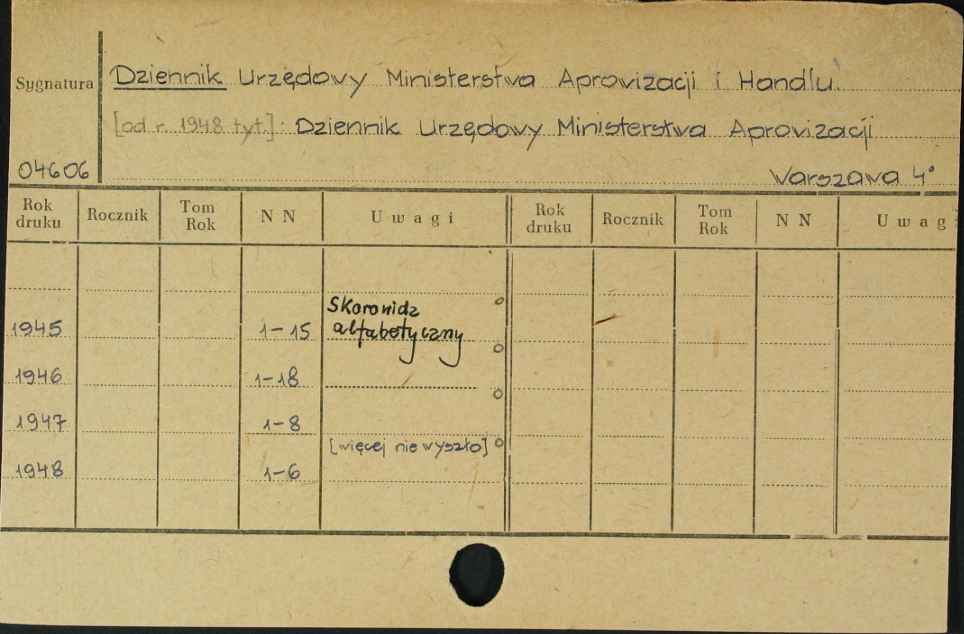 Sygnatura
Dziennik Urzędowy Ministerstwa Aprowizacji i Handlu.
[od r. 1948 tyt.]: Dziennik Urzędowy Ministerstwa Aprowizacji
04606
Warszawa 4°
Rok druku Rocznik Tom Rok N N Uwagi Rok druku Rocznik Tom Rok N N Uwag
Skorowidz
1945 1-15 alfabetyczny
1946 1-18
1947 1-8
[więcej nie wyszło]
1948 1-6